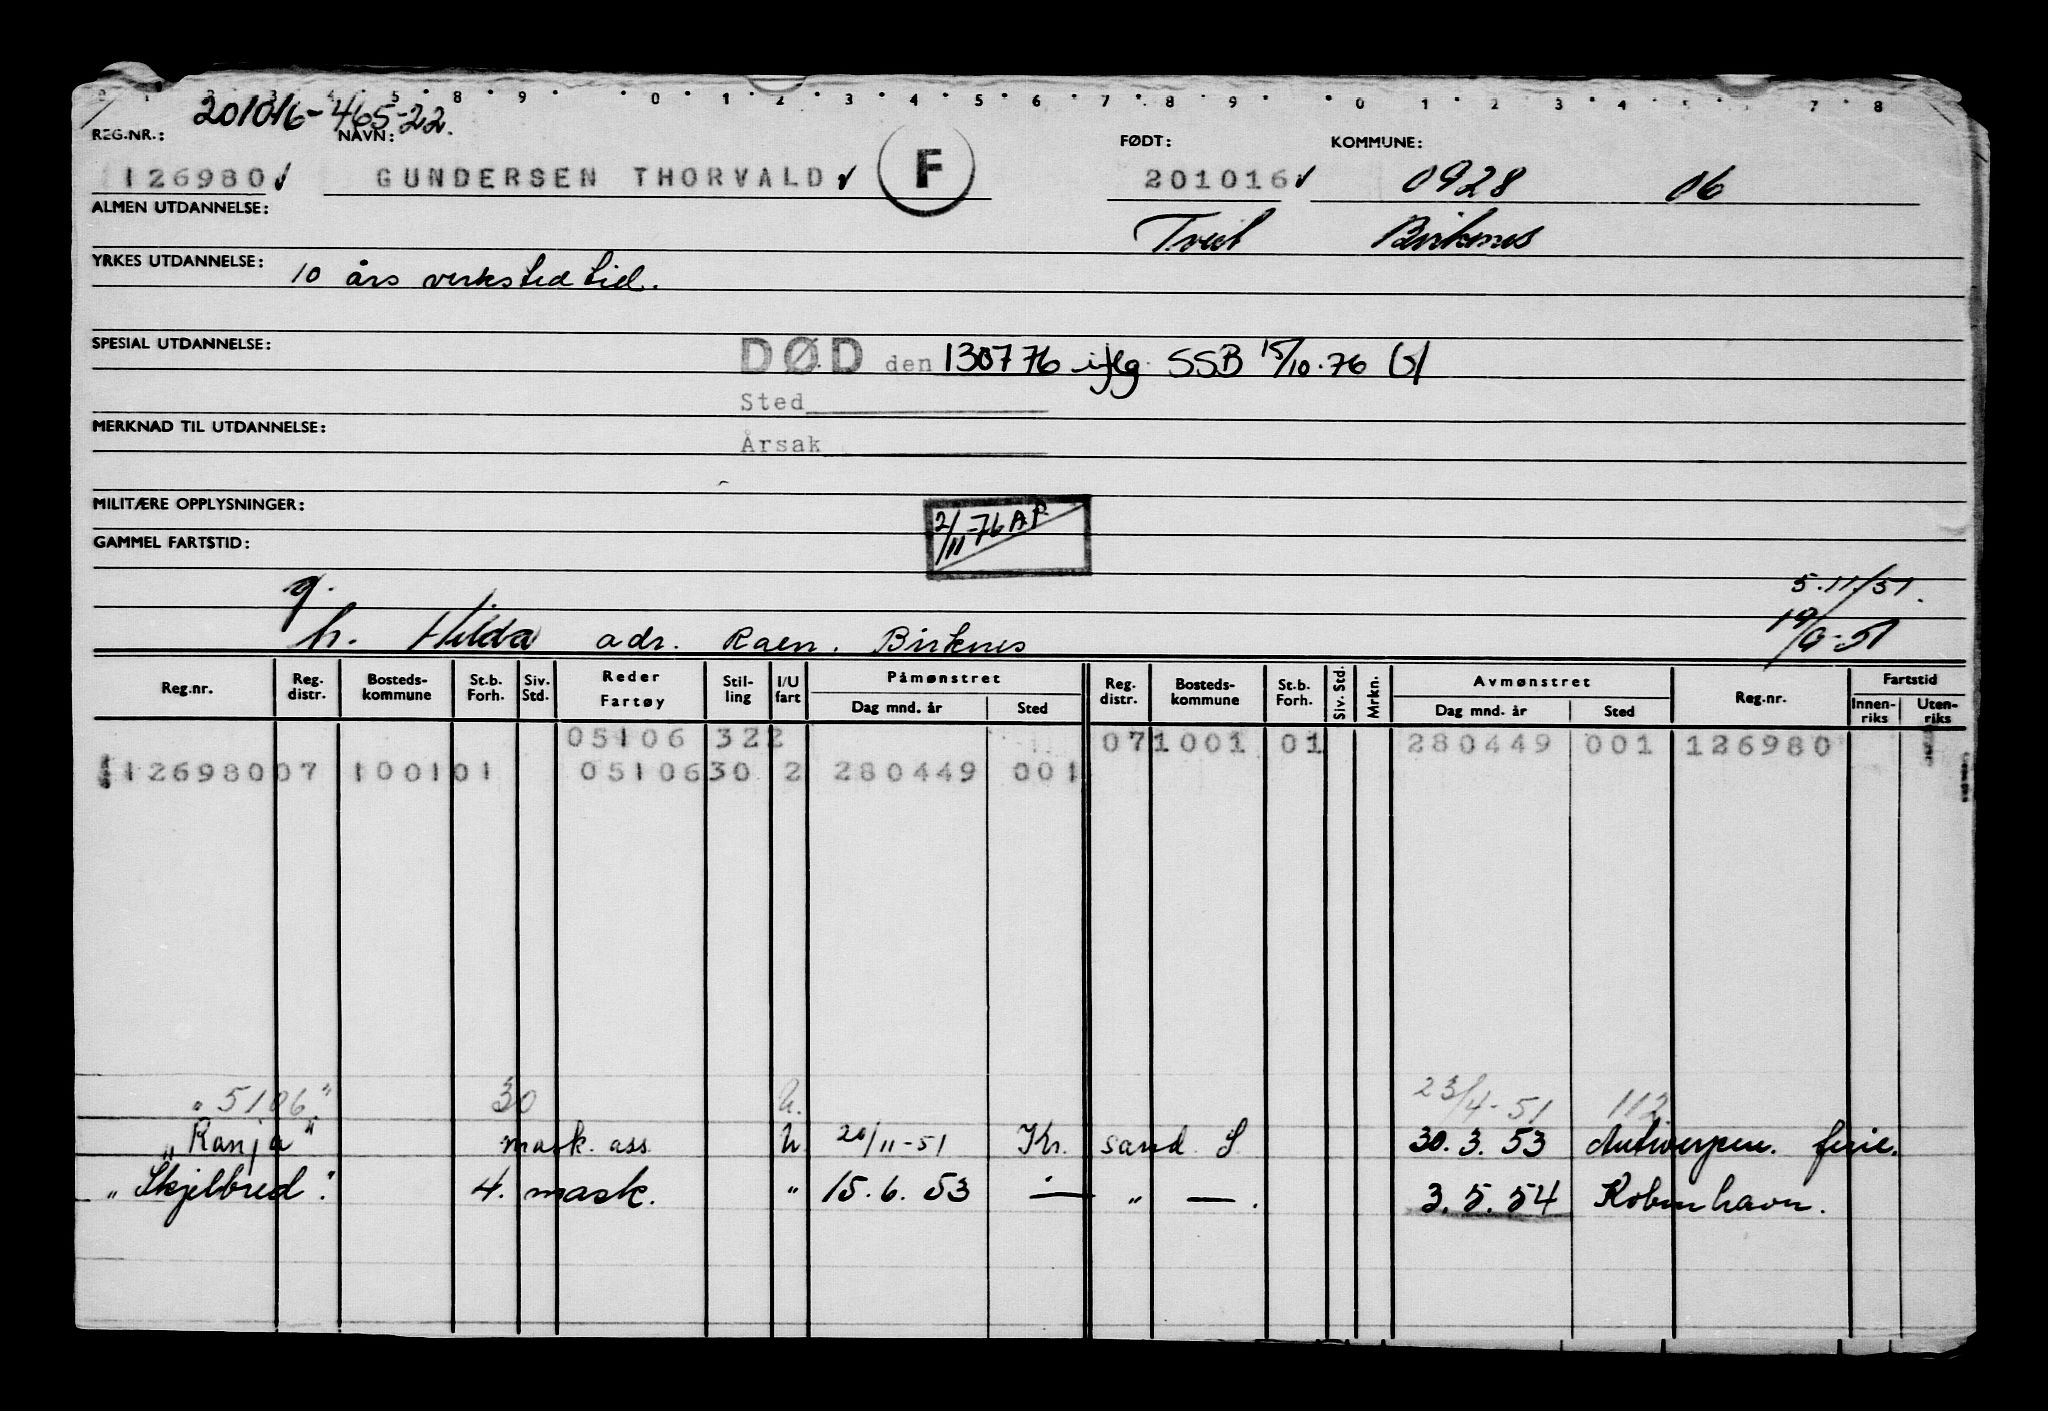 201016-465-22.
REG.NR.: NAVN: FØDT: KOMMUNE:
126980 GUNDERSEN THORVALD F 201016 0928 06
ALMEN UTDANNELSE: Tveit Birknes
YRKES UTDANNELSE: 10 års verksted tid.
SPESIAL UTDANNELSE:
DØD den 130776 iflg. SSB 15/10.76
Sted
MERKNAD TIL UTDANNELSE:
Årsak
MILITÆRE OPPLYSNINGER:
2/11-76 AP
GAMMEL FARTSTID:
g. 5.11/51.
h. Hilda adr. Raen. Birknes 19/9-51
Reg.nr. Reg. distr. Bosteds- kommune St.b. Forh. Siv. Std. Reder Fartøy Stil- ling I/U fart Påmønstret Dag mnd. år Sted Reg. distr. Bosteds- kommune St.b. Forh. Siv. Std. Mrkn. Avmønstret Dag mnd. år Sted Reg.nr. Fartstid Innen- riks Uten- riks
05106 322 071001 01 280449 001 126980
12698007 100101 0510630 2 280449 001
"5106." 30 U. 23/4-51 112
"Ranja" mask. ass U. 20/11-51 Kr. sand S 30.3.53 Antwerpen. ferie.
"Skjelbred". 4. mask. " 15.6.53 — " — . 3.5.54 København.